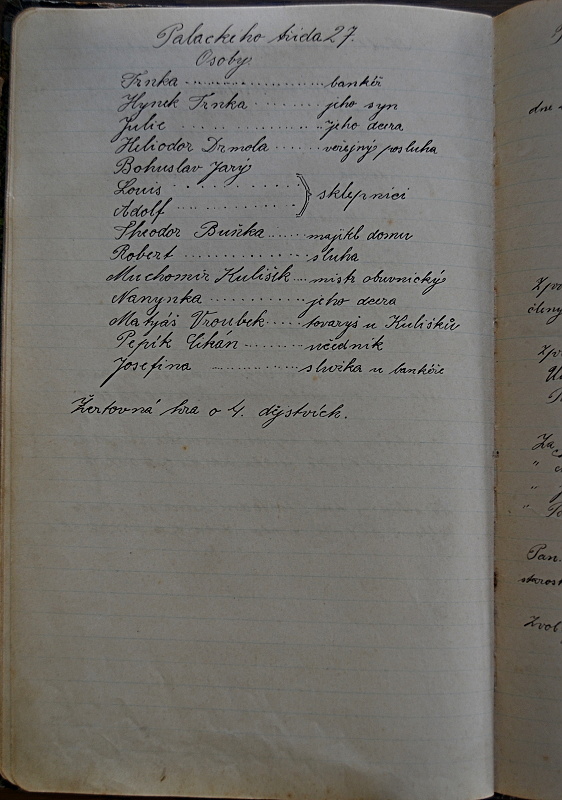 Palackeho třída 27.
Osoby:
Trnka .................... bankéř
Hynek Trnka ........ jeho syn
Julie ................ jeho dcera
Heliodor Drmola ...... veřejný posluha
Bohuslav Jarý
Louis ............ } sklepníci
Adolf ............
Theodor Buňka ...... majitel domu
Robert ............ sluha
Muchomír Kulíšek ... mistr obuvnický
Nanynka .......... jeho dcera
Matyáš Vroubek ..... tovaryš u Kulíšků
Pepík Cikan ......... učedník
Josefina ........... služka u bankéře
Žertovná hra o 4. dějstvích.
dne
Zpr
členy
Zpr
Za
"
"
"
Pan
starost
Zvol